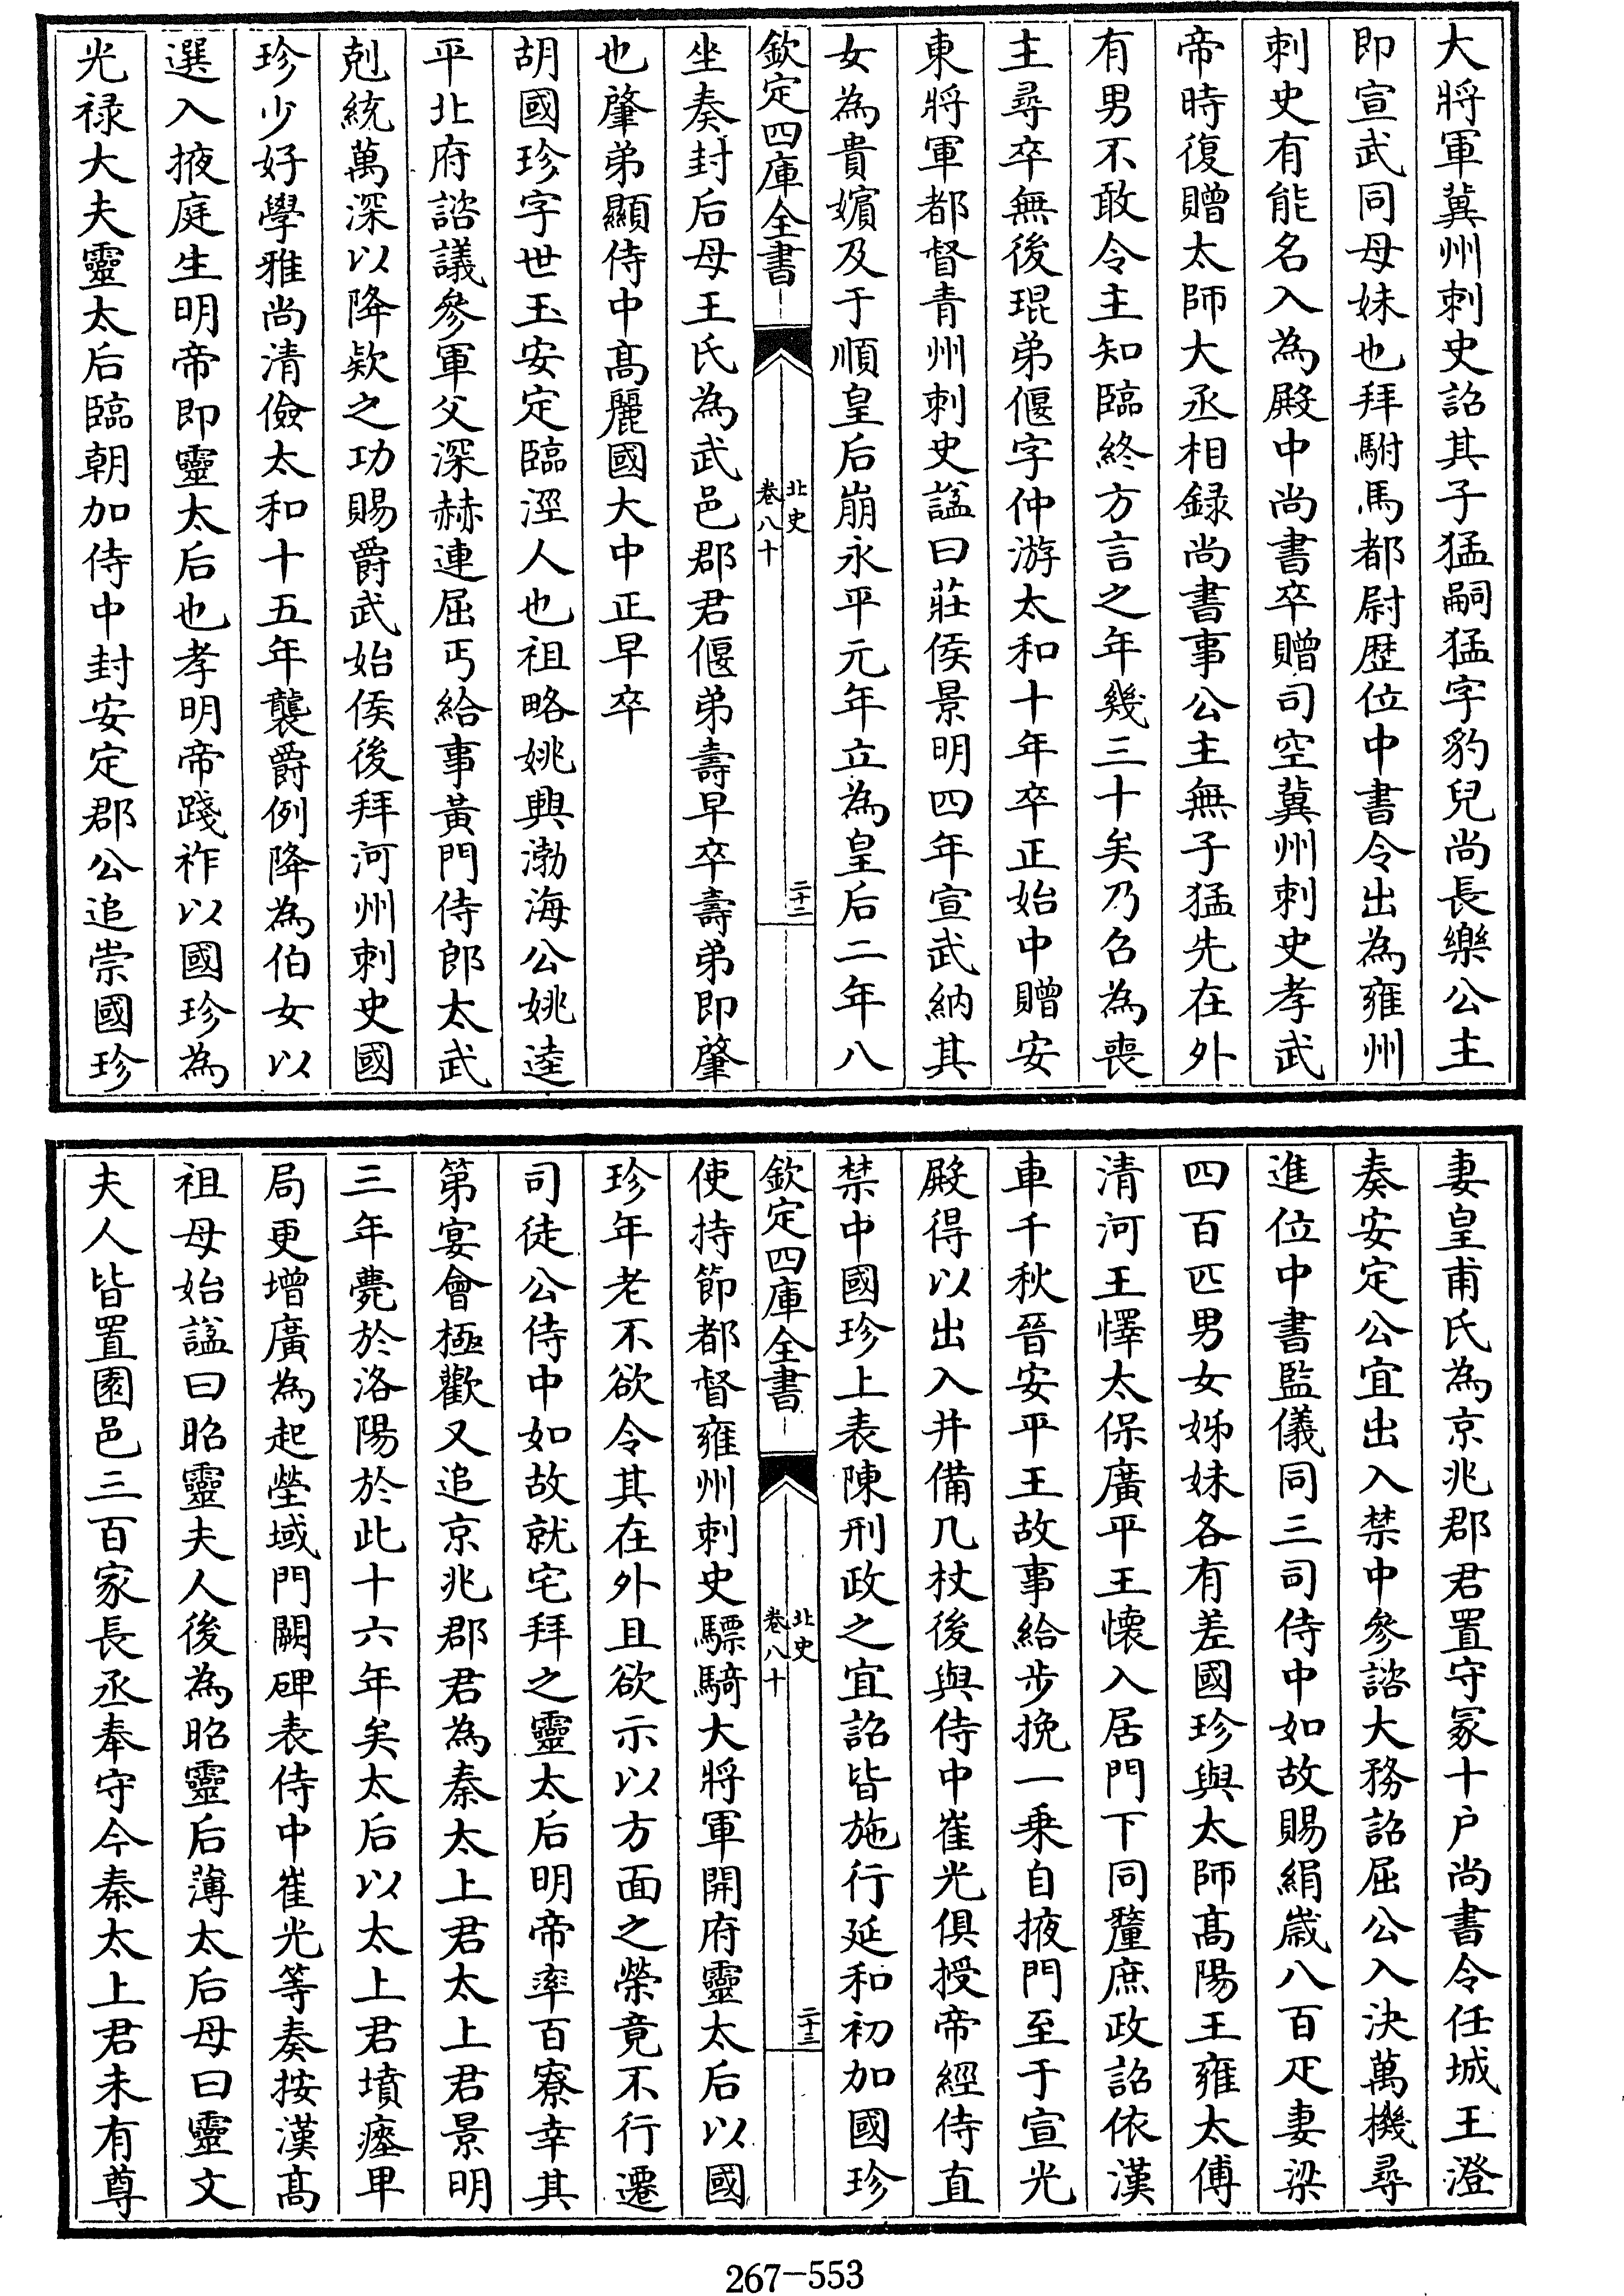 大將軍冀州刺史詔其子猛嗣猛字豹兒尚長樂公主
即宣武同母妹也拜駙馬都尉歴位中書令出為雍州
刺史有能名入為殿中尚書卒贈司空冀州刺史孝武
帝時復贈太師大丞相録尚書事公主無子猛先在外
有男不敢令主知臨終方言之年幾三十矣乃召為喪
主尋卒無後琨弟偃字仲游太和十年卒正始中贈安
東將軍都督青州刺史諡曰莊侯景明四年宣武納其
女為貴嬪及于順皇后崩永平元年立為皇后二年八
欽定四庫全書
北史
卷八十
二十二
坐奏封后母王氏為武邑郡君偃弟壽早卒壽弟即肇
也肇弟顯侍中髙麗國大中正早卒
胡國珍字世玉安定臨涇人也祖略姚興渤海公姚逵
平北府諮議參軍父深赫連屈丐給事黃門侍郎太武
剋統萬深以降欵之功賜爵武始侯後拜河州刺史國
珍少好學雅尚清儉太和十五年襲爵例降為伯女以
選入掖庭生明帝即靈太后也孝明帝踐祚以國珍為
光禄大夫靈太后臨朝加侍中封安定郡公追崇國珍
妻皇甫氏為京兆郡君置守冢十户尚書令任城王澄
奏安定公宜出入禁中參諮大務詔屈公入決萬機尋
進位中書監儀同三司侍中如故賜絹歲八百疋妻梁
四百匹男女姊妹各有差國珍與太師髙陽王雍太傅
清河王懌太保廣平王懷入居門下同釐庶政詔依漢
車千秋晉安平王故事給步挽一乗自掖門至于宣光
殿得以出入并備几杖後與侍中崔光俱授帝經侍直
禁中國珍上表陳刑政之宜詔皆施行延和初加國珍
欽定四庫全書
北史
卷八十
二十三
使持節都督雍州刺史驃騎大將軍開府靈太后以國
珍年老不欲令其在外且欲示以方面之榮竟不行遷
司徒公侍中如故就宅拜之靈太后明帝率百寮幸其
第宴會極歡又追京兆郡君為秦太上君太上君景明
三年薨於洛陽於此十六年矣太后以太上君墳瘞卑
局更增廣為起塋域門闕碑表侍中崔光等奏按漢髙
祖母始諡曰昭靈夫人後為昭靈后薄太后母曰靈文
夫人皆置園邑三百家長丞奉守今秦太上君未有尊
267-553